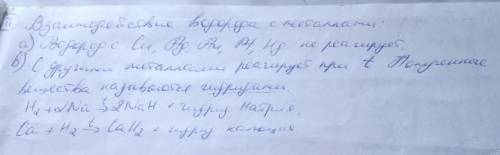 Взаимодействие водорода с металлами:
а) Водород с Cu, Ag, Au, Pt, Hg не реагирует.
б) С другими металлами реагирует при t Полученные
вещества называются гидридами.
H₂ + 2Na →t 2NaH + гидрид натрия.
Ca + H₂ →t CaH₂ + гидрид кальция